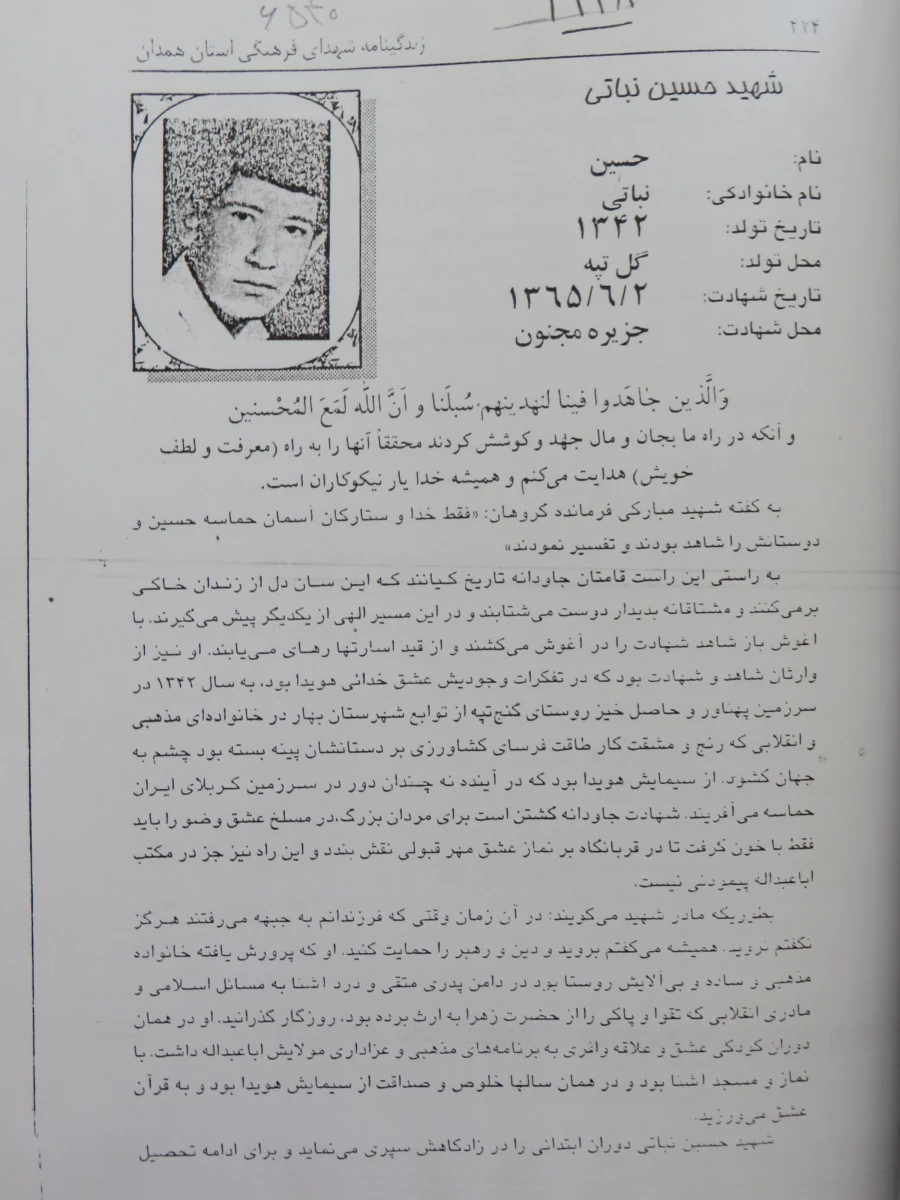 ۶۵۳۰
۲۲۴
زندگینامه شهدای فرهنگی استان همدان
شهید حسین نباتی
نام: حسین
نام خانوادگی: نباتی
تاریخ تولد: ۱۳۴۲
محل تولد: گل تپه
تاریخ شهادت: ۱۳۶۵/۶/۲
محل شهادت: جزیره مجنون
وَالَّذین جاهَدوا فینا لنهدینهم سُبلَنا و اَنَّ اللّٰه لَمَعَ المُحْسنین
و آنکه در راه ما بجان و مال جهْد و کوشش کردند محققاً آنها را به راه (معرفت و لطف
خویش) هدایت می‌کنم و همیشه خدا یار نیکوکاران است.
به گفته شهید مبارکی فرمانده گروهان: «فقط خدا و ستارگان آسمان حماسه حسین و
دوستانش را شاهد بودند و تفسیر نمودند»
به راستی این راست قامتان جاودانه تاریخ کیانند که این سان دل از زندان خاکی
برمی‌کنند و مشتاقانه بدیدار دوست می‌شتابند و در این مسیر الهی از یکدیگر پیش می‌گیرند. با
آغوش باز شاهد شهادت را در آغوش می‌کشند و از قید اسارتها رهای می‌یابند. او نیز از
وارثان شاهد و شهادت بود که در تفکرات وجودیش عشق خدائی هویدا بود، به سال ۱۳۴۲ در
سرزمین پهناور و حاصل خیز روستای گنج‌تپه از توابع شهرستان بهار در خانواده‌ای مذهبی
و انقلابی که رنج و مشقت کار طاقت فرسای کشاورزی بر دستانشان پینه بسته بود چشم به
جهان گشود. از سیمایش هویدا بود که در آینده نه چندان دور در سرزمین کربلای ایران
حماسه می‌آفریند. شهادت جاودانه گشتن است برای مردان بزرگ،در مسلخ عشق وضو را باید
فقط با خون گرفت تا در قربانگاه بر نماز عشق مهر قبولی نقش بندد و این راه نیز جز در مکتب
اباعبداله پیمودنی نیست.
بطوریکه مادر شهید می‌گویند: در آن زمان وقتی که فرزندانم به جبهه می‌رفتند هرگز
نگفتم نروید. همیشه می‌گفتم بروید و دین و رهبر را حمایت کنید. او که پرورش یافته خانواده
مذهبی و ساده و بی‌آلایش روستا بود در دامن پدری متقی و درد آشنا به مسائل اسلامی و
مادری انقلابی که تقوا و پاکی را از حضرت زهرا به ارث برده بود، روزگار گذرانید. او در همان
دوران کودکی عشق و علاقه وافری به برنامه‌های مذهبی و عزاداری مولایش اباعبداله داشت. با
نماز و مسجد آشنا بود و در همان سالها خلوص و صداقت از سیمایش هویدا بود و به قرآن
عشق می‌ورزید.
شهید حسین نباتی دوران ابتدائی را در زادگاهش سپری می‌نماید و برای ادامه تحصیل